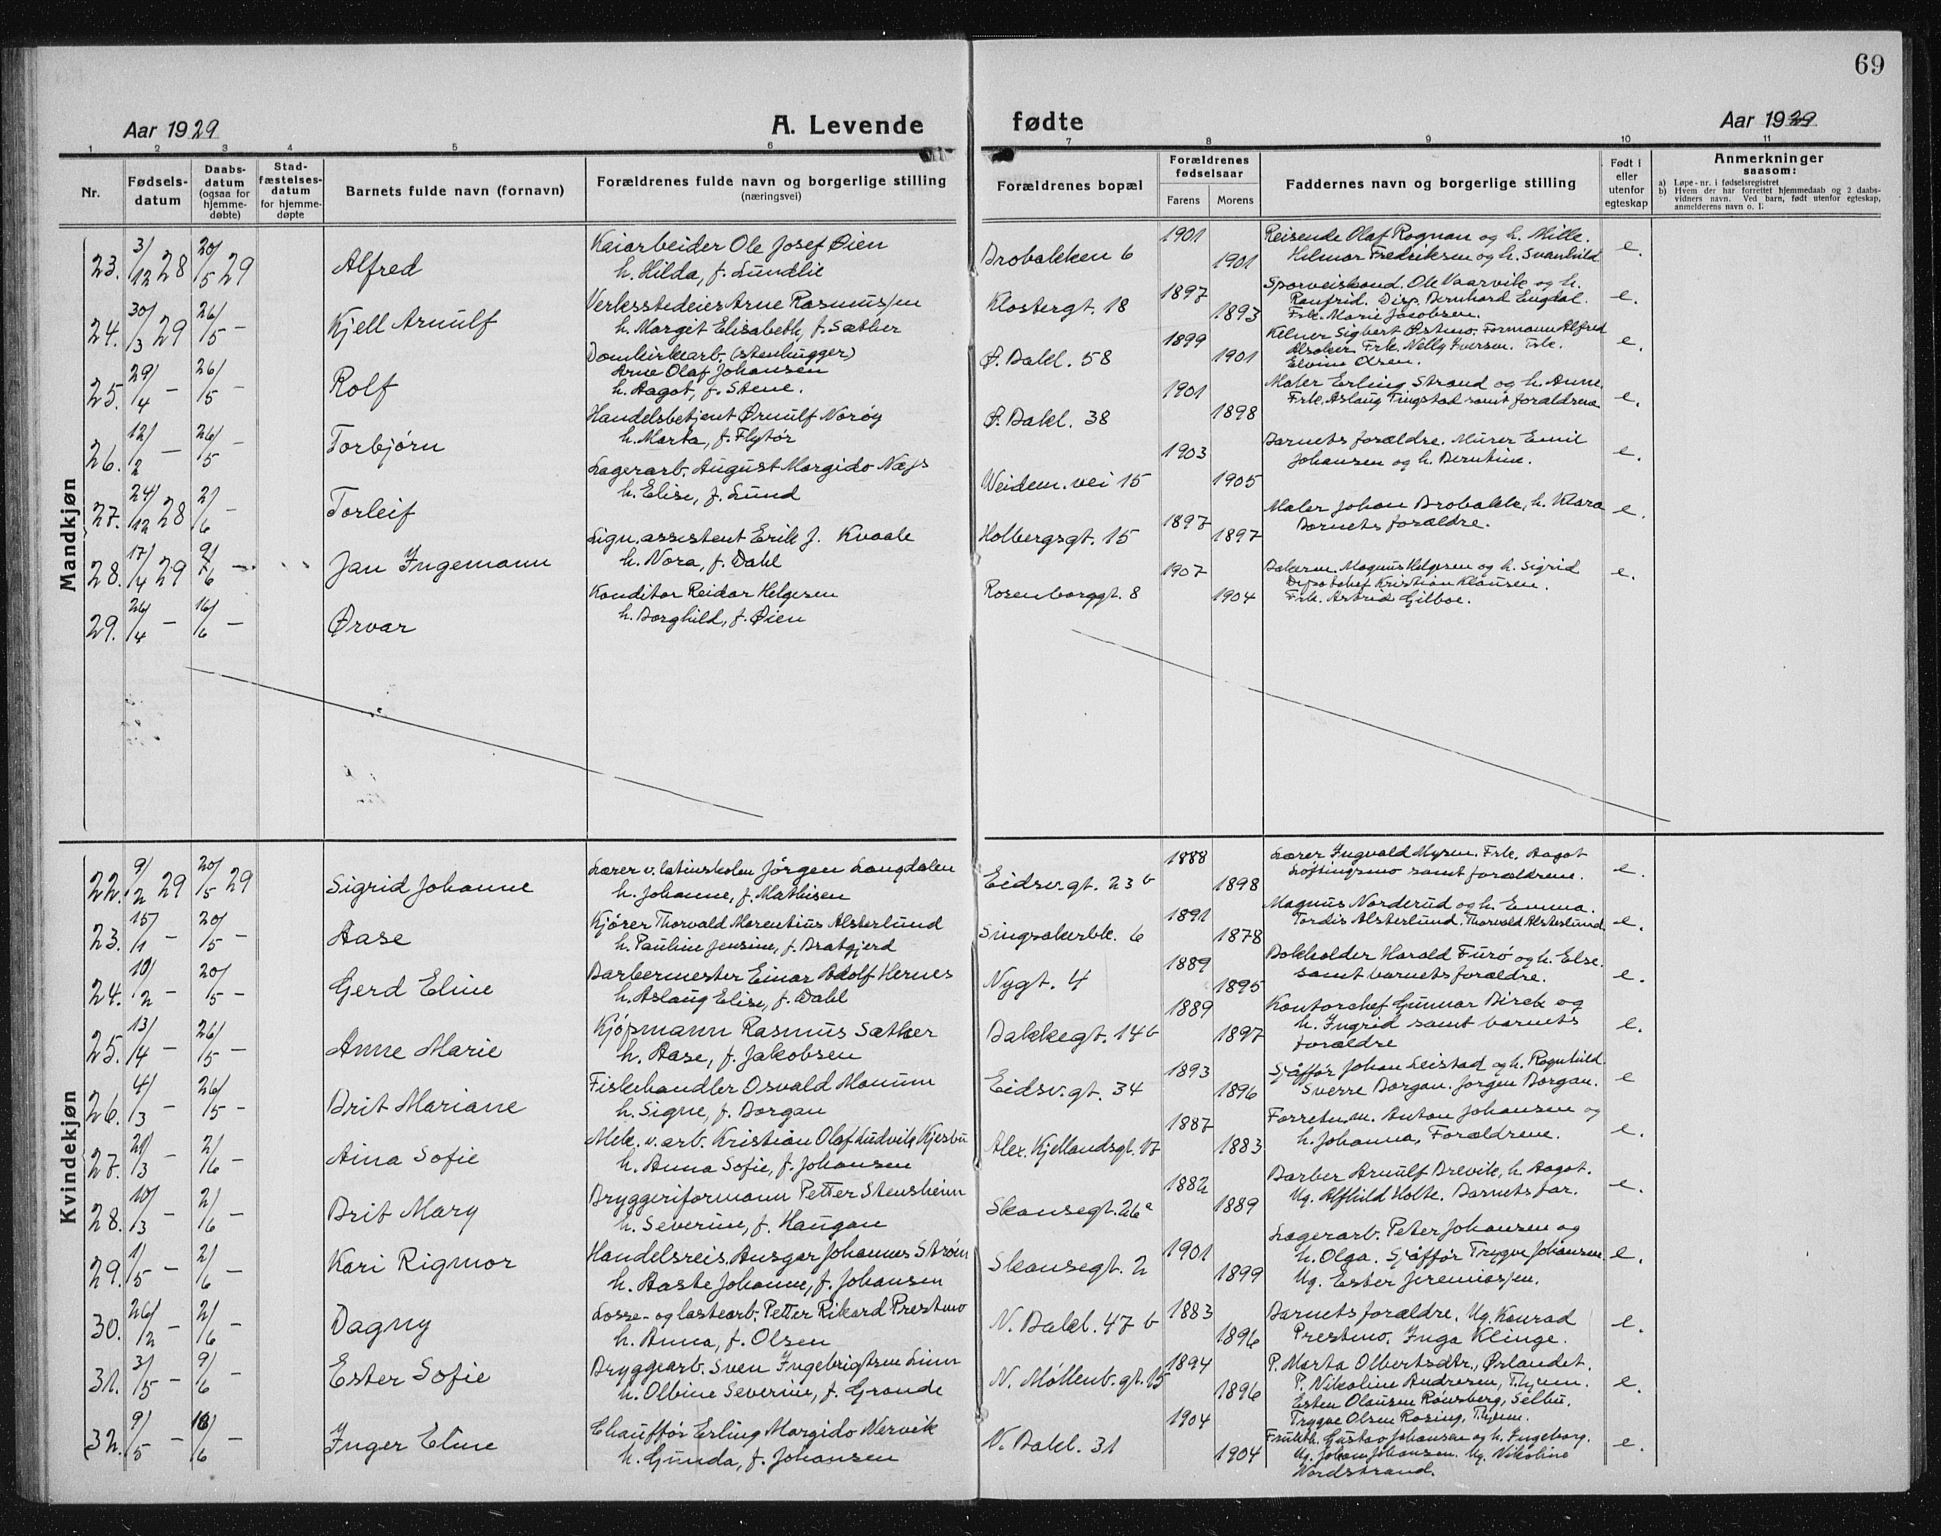 69
Aar 1929
A. Levende fødte
Aar 1929
1 2 3 4 5 6 7 8 9 10 11
Nr.
Fødsels-
datum
Daabs-
datum
(ogsaa for
hjemme-
døbte)
Stad-
fæstelses-
datum
for hjemme-
døpte
Barnets fulde navn (fornavn)
Forældrenes fulde navn og borgerlige stilling
(næringsvei)
Forældrenes bopæl
Forældrenes
fødselsaar
Farens Morens
Faddernes navn og borgerlige stilling
Født i
eller
utenfor
egteskap
Anmerkninger
saasom:
a) Løpe-nr. i fødselsregistret
b) Hvem der har forrettet hjemmedaab og 2 daabs-
vidners navn. Ved barn, født utenfor egteskap,
anmelderens navn o. l.
Mandkjøn
23. 3/12 28 20/5 29 Alfred
Kaiarbeider Ole Josef Øien
h. Hilda, f. Lundlie
Brobakken 6 1901 1901
Reisende Olaf Rognan og h. Mille.
Hilmar Fredriksen og h. Svanhild
e.
24. 30/3 29 26/5 — Kjell Arnulf
Verksstedeier Arne Rasmussen
h. Margit Elisabeth, f. Sæther
Klostergt. 18 1897 1893
Sporveiskond. Ole Vaarvik og h.
Ranfrid. Disp. Bernhard Engdal.
Frk. Marie Jacobsen.
e.
25. 29/4 — 26/5 Rolf
Domkirkearb. (stenhugger)
Arne Olaf Johansen
h. Aagot, f. Stene.
Ø. Bakl. 58 1899 1901
Kelner Sigbert Østmo. Formann Alfred
Alsaker Frk. Nelly Iversen. Frk.
Elvine Olsen.
e.
26. 12/2 — 26/5 — Torbjørn
Handelsbetjent Ørnulf Norøy
h. Marta, f. Flytør
Ø. Bakl. 38 1901 1898
Maler Erling Strand og h. Anne.
Frk. Aslaug Tingstad samt forældrene
e.
27. 24/12 28 2/6 — Torleif
Lagerarb. August Margido Næss
h. Elise, f. Lund
Weidem. vei 15 1903 1905
Barnets forældre. Murer Emil
Johansen og h. Berntine.
e.
28. 17/4 29 9/6 — Jan Ingemann
Lign. assistent Erik J. Kvaale
h. Nora, f. Dahl
Holbergsgt. 15 1897 1897
Maler Johan Brobakke, h. Klara
Barnets forældre.
e.
29. 26/4 — 16/6 — Ørvar
Konditor Reidar Helgesen
h. Borghild, f. Øien
Rosenborggt. 8 1907 1904
Bakerm. Magnus Helgesen og h. Sigrid
Kristian Klausen.
Frk. Astrid Gilboe.
e.
Kvindekjøn
22. 9/2 29 20/5 29 Sigrid Johanne
Lærer v. latinskolen Jörgen Langdalen
h. Johanne, f. Mathisen
Eidsv. gt. 23 b 1888 1898
Lærer Ingvald Mysen. Frk. Aagot
Løftingsmo samt forældrene.
e.
23. 15/1 — 20/5 — Aase
Kjører Thorvald Marentius Alsterlund
h. Pauline Jensine, f. Bratgjerd
Singsakerbk. 6 1891 1878
Magnus Norderud og h. Emma.
Tordis Alsterlund. Thorvald Alsterlund
e.
24. 10/2 — 20/5 — Gerd Eline
Barbermester Einar Adolf Hernes
h. Aslaug Elise, f. Dahl
Nygt. 4 1889 1895
Bokholder Harald Furø og h. Else.
samt barnets forældre.
e.
25. 13/4 — 26/5 — Anne Marie
Kjøpmann Rasmus Sæther
h. Aase, f. Jakobsen
Bakkegt. 14 b 1889 1897
Kontorchef Gunnar Birck og
h. Ingrid samt barnets
forældre
e.
26. 4/3 — 26/5 — Brit Mariane
Fiskehandler Osvald Monum
h. Signe, f. Borgan
Eidsv. gt. 34 1893 1896
Sjåffør Johan Leistad og h. Ragnhild
Sverre Borgan. Jørgen Borgan.
e
27. 29/3 — 2/6 — Aina Sofie
Mek. v. arb. Kristian Olaf Ludvik Kjesbu
h. Anna Sofie, f. Johansen
Alex. Kjellandsgt. 17 1887 1883
Forretn. m. Anton Johansen og
h. Johanna, Forældrene.
e.
28. 10/3 — 2/6 — Brit Mary
Bryggeriformann Petter Stensheim
h. Severine, f. Haugan
Skansegt. 26 a 1882 1889
Barber Arnulf Brevik, h. Aagot.
Ug. Alfhild Holte. Barnets far.
e.
29. 1/5 — 2/6 — Kari Rigmor
Handelsreis. Ansgar Johannes Strøm
h. Aaste Johanne, f. Johansen
Skansegt. 2 1901 1899
Lagerarb. Peter Johansen og
h. Olga. Sjåffør Trygve Johansen
Ug. Ester Jeremiassen.
e.
30. 26/2 — 2/6 — Dagny
Losse- og lastearb. Petter Rikard Prestmo
h. Anna, f. Olsen
N. Bakl. 47 b 1883 1896
Barnets forældre. Ug. Konrad
Prestmo. Inga Klinge.
e.
31. 3/5 — 9/6 — Ester Sofie
Bryggearb. Sven Ingebrigtsen Linn
h. Olbine Severine, f. Grande
N. Møllenb. gt. 15 1894 1896
P. Marta Olbertsdtr., Ørlandet.
P. Nikoline Andresen, Thjem.
Esten Olausen Rønsberg, Selbu.
Trygve Olsen Rosing, Thjem.
e.
32. 9/5 — /6 — Inger Eline
Chauffør Erling Margido Nervik
h. Gunda, f. Johansen
N. Bakl. 31 1904 1904
Gustav Johansen og h. Ingeborg.
Ug. Johan Johansen. Ug. Nikoline
Nordstrand.
e.